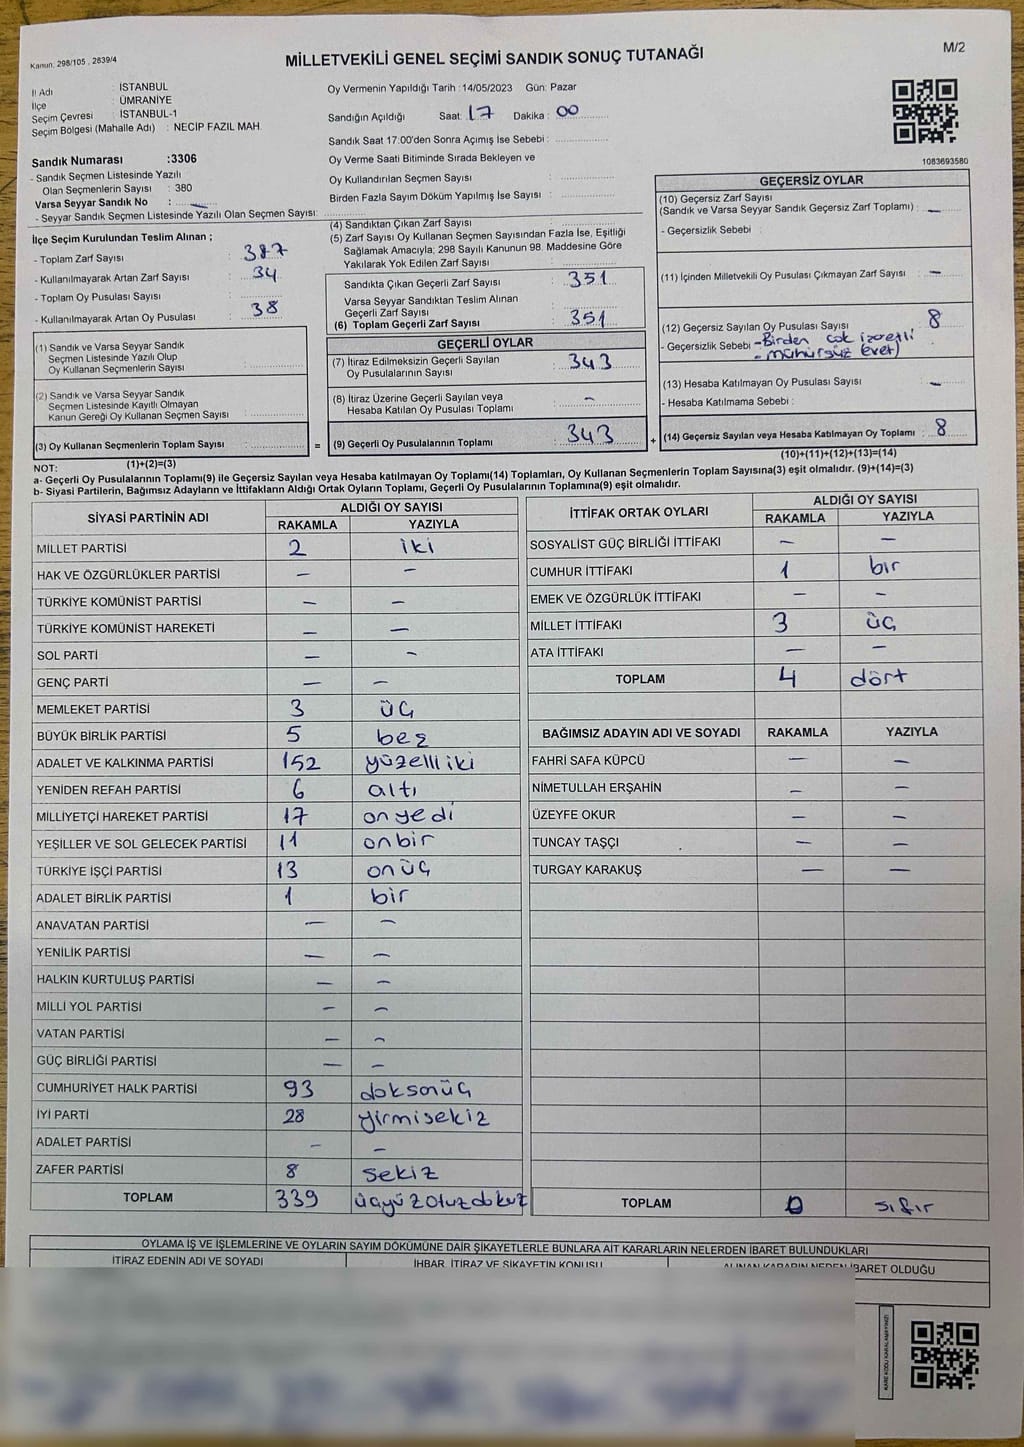 Kanun: 298/105, 2839/4
MİLLETVEKİLİ GENEL SEÇİMİ SANDIK SONUÇ TUTANAĞI
M/2
İl Adı : İSTANBUL
İlçe : ÜMRANİYE
Seçim Çevresi : İSTANBUL-1
Seçim Bölgesi (Mahalle Adı) : NECİP FAZIL MAH.
Oy Vermenin Yapıldığı Tarih : 14/05/2023 Gün: Pazar
Sandığın Açıldığı Saat: 17 Dakika : 00
Sandık Saat 17:00'den Sonra Açımış İse Sebebi :
Oy Verme Saati Bitiminde Sırada Bekleyen ve
Oy Kullandırılan Seçmen Sayısı :
Birden Fazla Sayım Döküm Yapılmış İse Sayısı :
1083693580
Sandık Numarası :3306
- Sandık Seçmen Listesinde Yazılı
Olan Seçmenlerin Sayısı : 380
Varsa Seyyar Sandık No : —
- Seyyar Sandık Seçmen Listesinde Yazılı Olan Seçmen Sayısı:
İlçe Seçim Kurulundan Teslim Alınan ;
- Toplam Zarf Sayısı : 387
- Kullanılmayarak Artan Zarf Sayısı : 34
- Toplam Oy Pusulası Sayısı :
- Kullanılmayarak Artan Oy Pusulası : 38
(1) Sandık ve Varsa Seyyar Sandık
Seçmen Listesinde Yazılı Olup
Oy Kullanan Seçmenlerin Sayısı :
(2) Sandık ve Varsa Seyyar Sandık
Seçmen Listesinde Kayıtlı Olmayan
Kanun Gereği Oy Kullanan Seçmen Sayısı :
(3) Oy Kullanan Seçmenlerin Toplam Sayısı
(1)+(2)=(3)
(4) Sandıktan Çıkan Zarf Sayısı :
(5) Zarf Sayısı Oy Kullanan Seçmen Sayısından Fazla İse, Eşitliği
Sağlamak Amacıyla; 298 Sayılı Kanunun 98. Maddesine Göre
Yakılarak Yok Edilen Zarf Sayısı :
Sandıkta Çıkan Geçerli Zarf Sayısı : 351
Varsa Seyyar Sandıktan Teslim Alınan
Geçerli Zarf Sayısı :
(6) Toplam Geçerli Zarf Sayısı : 351
GEÇERLİ OYLAR
(7) İtiraz Edilmeksizin Geçerli Sayılan
Oy Pusulalarının Sayısı : 343
(8) İtiraz Üzerine Geçerli Sayılan veya
Hesaba Katılan Oy Pusulası Toplamı : –
= (9) Geçerli Oy Pusulalarının Toplamı : 343
GEÇERSİZ OYLAR
(10) Geçersiz Zarf Sayısı
(Sandık ve Varsa Seyyar Sandık Geçersiz Zarf Toplamı) : —
- Geçersizlik Sebebi :
(11) İçinden Milletvekili Oy Pusulası Çıkmayan Zarf Sayısı : —
(12) Geçersiz Sayılan Oy Pusulası Sayısı : 8
- Geçersizlik Sebebi - Birden çok işaretli
- mühürsüz (evet)
(13) Hesaba Katılmayan Oy Pusulası Sayısı : —
- Hesaba Katılmama Sebebi :
+ (14) Geçersiz Sayılan veya Hesaba Katılmayan Oy Toplamı : 8
(10)+(11)+(12)+(13)=(14)
NOT:
a- Geçerli Oy Pusulalarının Toplamı(9) ile Geçersiz Sayılan veya Hesaba katılmayan Oy Toplamı(14) Toplamları, Oy Kullanan Seçmenlerin Toplam Sayısına(3) eşit olmalıdır. (9)+(14)=(3)
b- Siyasi Partilerin, Bağımsız Adayların ve İttifakların Aldığı Ortak Oyların Toplamı, Geçerli Oy Pusulalarının Toplamına(9) eşit olmalıdır.
SİYASİ PARTİNİN ADI ALDIĞI OY SAYISI
RAKAMLA YAZIYLA
MİLLET PARTİSİ 2 iki
HAK VE ÖZGÜRLÜKLER PARTİSİ — —
TÜRKİYE KOMÜNİST PARTİSİ — —
TÜRKİYE KOMÜNİST HAREKETİ — —
SOL PARTİ — —
GENÇ PARTİ — —
MEMLEKET PARTİSİ 3 üç
BÜYÜK BİRLİK PARTİSİ 5 beş
ADALET VE KALKINMA PARTİSİ 152 yüzelliiki
YENİDEN REFAH PARTİSİ 6 altı
MİLLİYETÇİ HAREKET PARTİSİ 17 onyedi
YEŞİLLER VE SOL GELECEK PARTİSİ 11 onbir
TÜRKİYE İŞÇİ PARTİSİ 13 onüç
ADALET BİRLİK PARTİSİ 1 bir
ANAVATAN PARTİSİ — —
YENİLİK PARTİSİ — —
HALKIN KURTULUŞ PARTİSİ — —
MİLLİ YOL PARTİSİ — —
VATAN PARTİSİ — —
GÜÇ BİRLİĞİ PARTİSİ — —
CUMHURİYET HALK PARTİSİ 93 doksanüç
İYİ PARTİ 28 yirmisekiz
ADALET PARTİSİ — —
ZAFER PARTİSİ 8 sekiz
TOPLAM 339 üçyüzotuzdokuz
İTTİFAK ORTAK OYLARI ALDIĞI OY SAYISI
RAKAMLA YAZIYLA
SOSYALİST GÜÇ BİRLİĞİ İTTİFAKI — —
CUMHUR İTTİFAKI 1 bir
EMEK VE ÖZGÜRLÜK İTTİFAKI — —
MİLLET İTTİFAKI 3 üç
ATA İTTİFAKI — —
TOPLAM 4 dört
BAĞIMSIZ ADAYIN ADI VE SOYADI RAKAMLA YAZIYLA
FAHRİ SAFA KÜPCÜ — —
NİMETULLAH ERŞAHİN — —
ÜZEYFE OKUR — —
TUNCAY TAŞÇI — —
TURGAY KARAKUŞ — —
TOPLAM 0 sıfır
OYLAMA İŞ VE İŞLEMLERİNE VE OYLARIN SAYIM DÖKÜMÜNE DAİR ŞİKAYETLERLE BUNLARA AİT KARARLARIN NELERDEN İBARET BULUNDUKLARI
İTİRAZ EDENİN ADI VE SOYADI İHBAR, İTİRAZ VE ŞİKAYETİN KONUSU ALINAN KARARIN NEDEN İBARET OLDUĞU